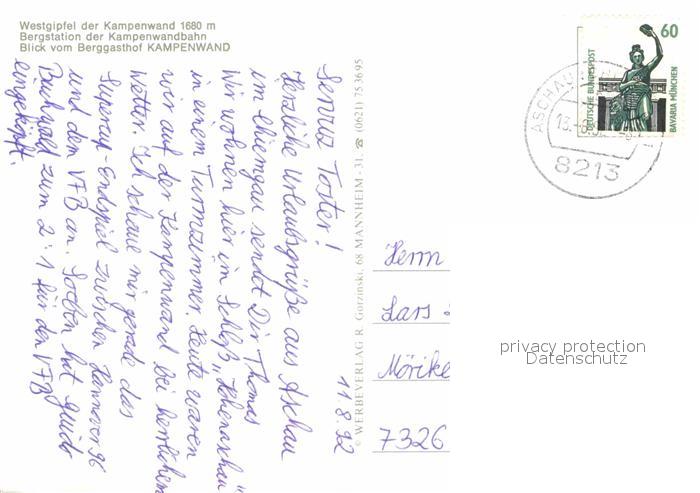 Westgipfel der Kampenwand 1680 m
Bergstation der Kampenwandbahn
Blick vom Berggasthof KAMPENWAND
11.8.92
Servus Toster!
Herzliche Urlaubsgrüße aus Aschau
im Chiemgau sendet Dir Thomas
Wir wohnen hier im Schloß „Hohenaschau“
in einem Turmzimmer. Heute waren
wir auf der Kampenwand bei herrlichem
Wetter. Ich schaue mir gerade das
Supercup-Endspiel zwischen Hannover 96
und dem VFB an. Soeben hat Guido
Buchwald zum 2:1 für den VFB
eingeköpft
© WERBEVERLAG R. Gorzinski, 68 MANNHEIM - 31, ☎ (0621) 75 36 95
60
DEUTSCHE BUNDESPOST
BAVARIA MÜNCHEN
ASCHAU
13.-8.
8213
Herrn
Lars
Mörike
7326
privacy protection
Datenschutz